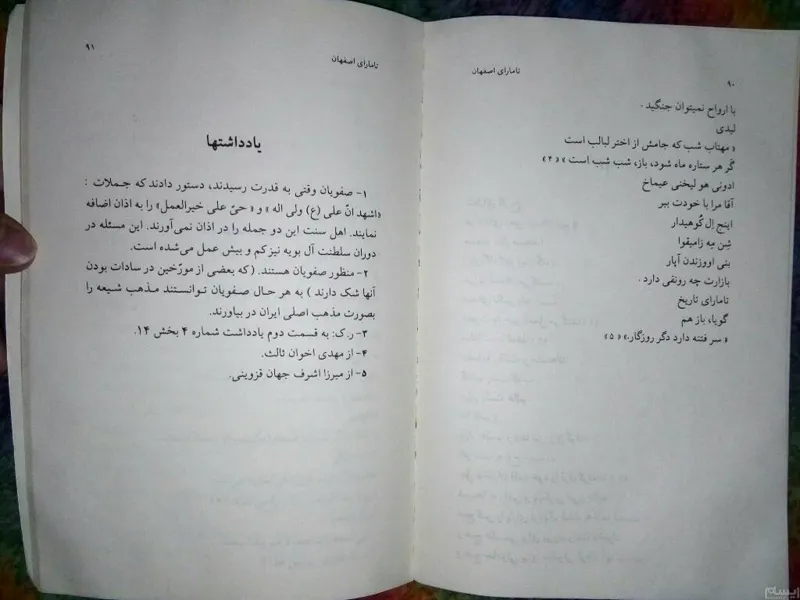 ۹۰
تامارای اصفهان
با ارواح نمیتوان جنگید .
لیدی
« مهتاب شب که جامش از اختر لبالب است
گر هر ستاره ماه شود، باز، شب شب است » « ۴ »
ادونی هو لیخنی عیماخ
آقا مرا با خودت ببر
اینج اِل گُوهیدار
ئین مِه زامیقوا
بنی اووزندن آپار
بازارت چه رونقی دارد .
تامارای تاریخ
گویا، باز هم
« سر فتنه دارد دگر روزگار.» « ۵ »
تامارای اصفهان
۹۱
یادداشتها
۱- صفویان وقتی به قدرت رسیدند، دستور دادند که جملات :
«اشهد انّ علی (ع) ولی اله » و « حیّ علی خیرالعمل» را به اذان اضافه
نمایند. اهل سنت این دو جمله را در اذان نمی‌آورند. این مسئله در
دوران سلطنت آل بویه نیز کم و بیش عمل می‌شده است.
۲- منظور صفویان هستند. ( که بعضی از مورّخین در سادات بودن
آنها شک دارند ) به هر حال صفویان توانستند مذهب شیعه را
بصورت مذهب اصلی ایران در بیاورند.
۳- ر.ک: به قسمت دوم یادداشت شماره ۴ بخش ۱۴.
۴- از مهدی اخوان ثالث.
۵- از میرزا اشرف جهان قزوینی.
ایسام